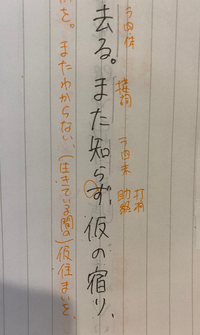 ラ四体
ラ四未
打消
去る。また知らず、仮の宿り、
を。またわからない、(生きている間の)仮住まいを、